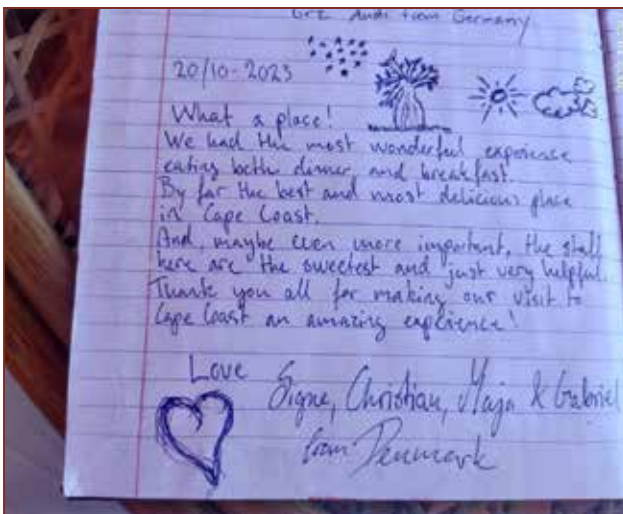 from Germany
20/10-2023
What a place!
We had the most wonderful experience
eating both dinner and breakfast.
By far the best and most delicious place
in Cape Coast.
And, maybe even more important, the staff
here are the sweetest and just very helpful.
Thank you all for making our visit to
Cape Coast an amazing experience!
Love
Signe, Christian, Maja & Gabriel
from Denmark